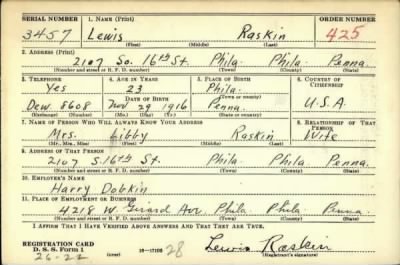 SERIAL NUMBER 1. NAME (Print) ORDER NUMBER
3457 Lewis Raskin 425
(First) (Middle) (Last)
2. ADDRESS (Print)
2107 So. 16th St. Phila. Phila. Penna.
(Number and street or R. F. D. number) (Town) (County) (State)
3. TELEPHONE 4. AGE IN YEARS 5. PLACE OF BIRTH 6. COUNTRY OF CITIZENSHIP
Yes 23 Phila.
DATE OF BIRTH (Town or county)
Dew. 8608 Nov 29 1916 Penna. U.S.A.
(Exchange) (Number) (Mo.) (Day) (Yr.) (State or country)
7. NAME OF PERSON WHO WILL ALWAYS KNOW YOUR ADDRESS 8. RELATIONSHIP OF THAT PERSON
Mrs. Libby Raskin Wife
(Mr., Mrs., Miss) (First) (Middle) (Last)
9. ADDRESS OF THAT PERSON
2107 S. 16th St. Phila. Phila. Penna.
(Number and street or R. F. D. number) (Town) (County) (State)
10. EMPLOYER'S NAME
Harry Dobkin
11. PLACE OF EMPLOYMENT OR BUSINESS
4218 W. Girard Ave. Phila Phila Penna
(Number and street or R. F. D. number) (Town) (County) (State)
I AFFIRM THAT I HAVE VERIFIED ABOVE ANSWERS AND THAT THEY ARE TRUE.
REGISTRATION CARD
D. S. S. Form 1 (over) 16-17105 28 Lewis Raskin
26-22 (Registrant's signature)